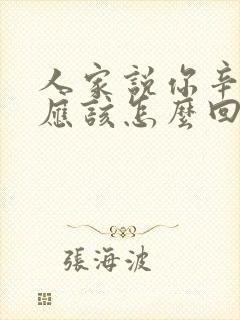 人家說你辛
應該怎麼回
張海波